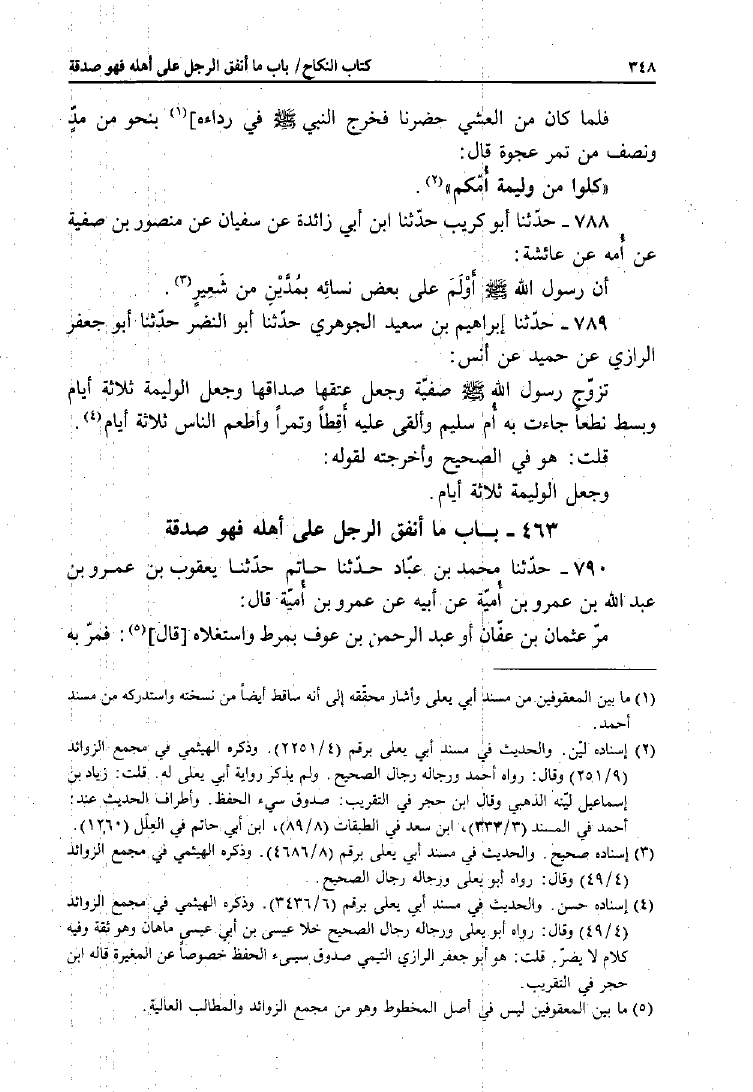 ٣٤٨ كتاب النكاح/ باب ما أنفق الرجل على أهله فهو صدقة
فلما كان من العشي حضرنا فخرج النبي ﷺ في رداءه](١) بنحو من مدٍّ
ونصف من تمر عجوة قال:
«كلوا من وليمة أُمّكم»(٢).
٧٨٨ ـ حدّثنا أبو كريب حدّثنا ابن أبي زائدة عن سفيان عن منصور بن صفية
عن أُمه عن عائشة:
أن رسول الله ﷺ أَوْلَمَ على بعض نسائِه بمُدَّيْنِ من شَعِيرٍ(٣).
٧٨٩ ـ حدّثنا إبراهيم بن سعيد الجوهري حدّثنا أبو النضر حدّثنا أبو جعفر
الرازي عن حميد عن أنس:
تزوّج رسول الله ﷺ صفيّة وجعل عتقها صداقها وجعل الوليمة ثلاثة أيام
وبسط نطعاً جاءت به أُم سليم وألقى عليه أَقِطاً وتمراً وأطعم الناس ثلاثة أيام(٤).
قلت: هو في الصحيح وأخرجته لقوله:
وجعل الوليمة ثلاثة أيام.
٤٦٣ ـ بـاب ما أنفق الرجل على أهله فهو صدقة
٧٩٠ ـ حدّثنا محمد بن عبّاد حدّثنا حاتم حدّثنا يعقوب بن عمرو بن
عبد الله بن عمرو بن أُميّة عن أبيه عن عمرو بن أُميّة قال:
مرّ عثمان بن عفّان أو عبد الرحمن بن عوف بمرط واستغلاه [قال](٥): فمرّ به
(١) ما بين المعقوفين من مسند أبي يعلى وأشار محقّقه إلى أنه ساقط أيضاً من نسخته واستدركه من مسند
أحمد.
(٢) إسناده ليّن. والحديث في مسند أبي يعلى برقم (٢٢٥١/٤). وذكره الهيثمي في مجمع الزوائد
(٢٥١/٩) وقال: رواه أحمد ورجاله رجال الصحيح. ولم يذكر رواية أبي يعلى له. قلت: زياد بن
إسماعيل ليّنه الذهبي وقال ابن حجر في التقريب: صدوق سيء الحفظ. وأطراف الحديث عند:
أحمد في المسند (٣٣٣/٣)، ابن سعد في الطبقات (٨٩/٨)، ابن أبي حاتم في العِلَل (١٢٦٠).
(٣) إسناده صحيح. والحديث في مسند أبي يعلى برقم (٤٦٨٦/٨). وذكره الهيثمي في مجمع الزوائد
(٤٩/٤) وقال: رواه أبو يعلى ورجاله رجال الصحيح.
(٤) إسناده حسن. والحديث في مسند أبي يعلى برقم (٣٤٣٦/٦). وذكره الهيثمي في مجمع الزوائد
(٤٩/٤) وقال: رواه أبو يعلى ورجاله رجال الصحيح خلا عيسى بن أبي عيسى ماهان وهو ثقة وفيه
كلام لا يضرّ. قلت: هو أبو جعفر الرازي التيمي صدوق سيىء الحفظ خصوصاً عن المغيرة قاله ابن
حجر في التقريب.
(٥) ما بين المعقوفين ليس في أصل المخطوط وهو من مجمع الزوائد والمطالب العالية.